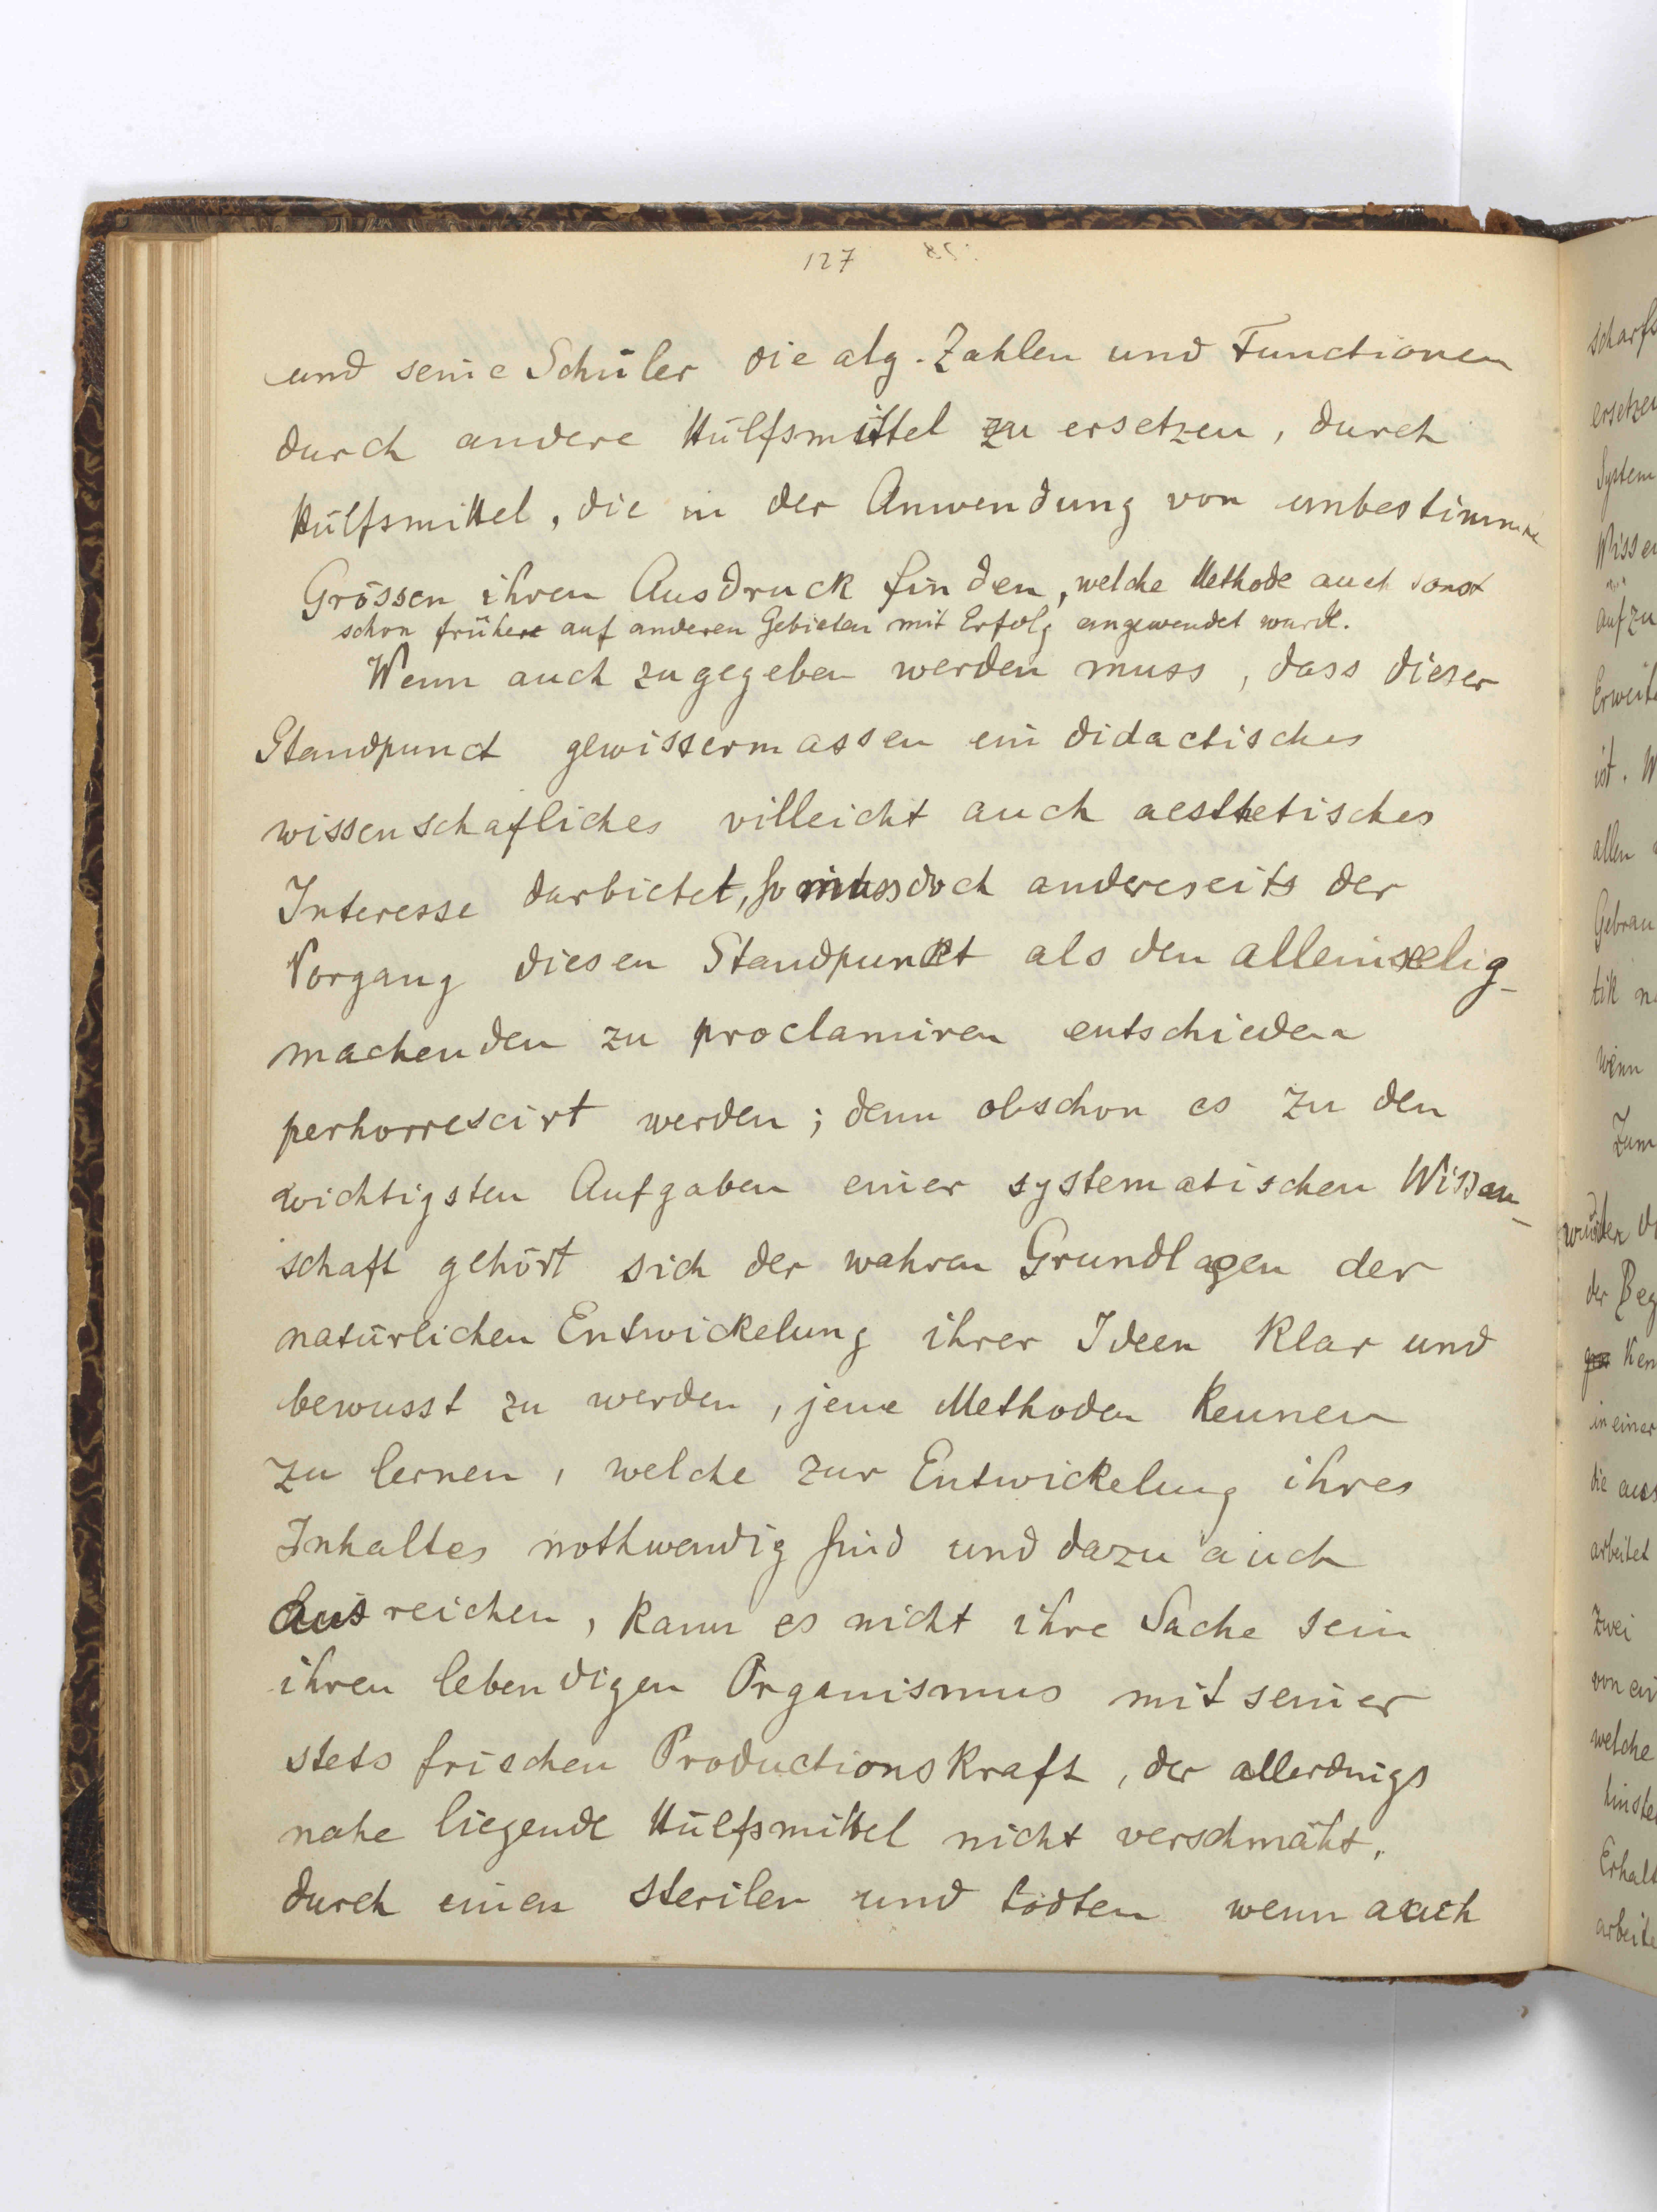 127
und seine Schüler die alg. Zahlen und Functionen
durch andere Hülfsmittel zu ersetzen, durch
Hülfsmittel, die in der Anwendung von unbestimmten
Grössen ihren Ausdruck finden, welche Methode auch sonst
schon früher auf anderen Gebieten mit Erfolg angewendet wurde.
Wenn auch zugegeben werden muss, dass dieser
Standpunct gewissermassen ein didactisches
wissenschafliches villeicht auch aesthetisches
Interesse darbietet, so muss doch andereseits der
Vorgang diesen Standpunkt als den alleinselig-
machenden zu proclamiren entschieden
perhorrescirt werden; denn obschon es zu den
wichtigsten Aufgaben einer systematischen Wissen-
schaft gehört sich der wahren Grundlagen der
natürlichen Entwickelung ihrer Ideen klar und
bewusst zu werden, jene Methoden kennen
zu lernen, welche zur Entwickelung ihres
Inhaltes nothwendig sind und dazu auch
ausreichen, kann es nicht ihre Sache sein
ihren lebendigen Organismus mit seiner
stets frischen Productionskraft, der allerdings
nahe liegende Hülfsmittel nicht verschmäht,
durch einen sterilen und todten wenn auch
ersetzen
System
allen
tik
wenn
in einer
arbeitet
zwei
welche